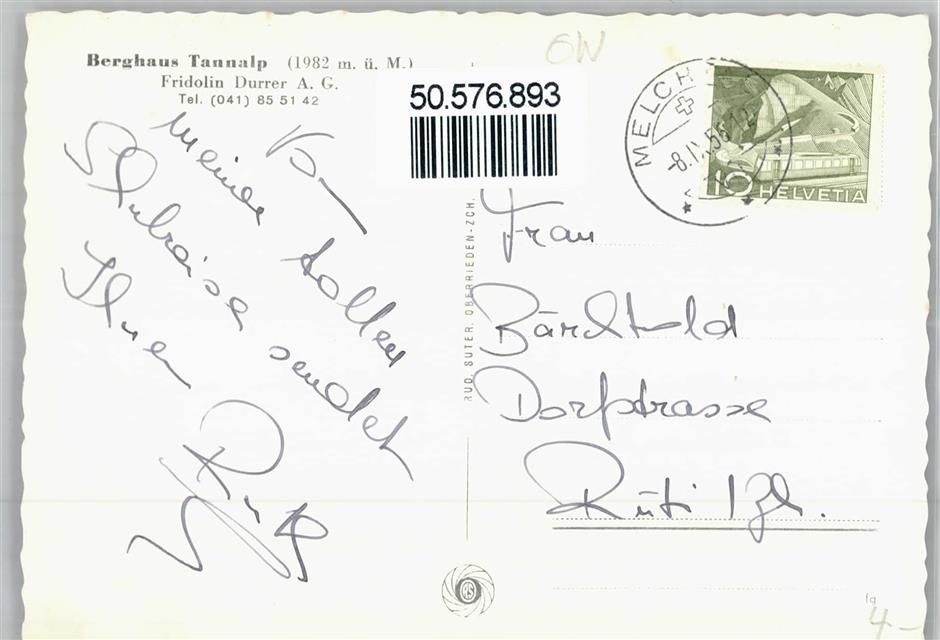 Berghaus Tannalp (1982 m. ü. M.)
Fridolin Durrer A. G.
Tel. (041) 85 51 42
OW
50.576.893
MELCH
-8.IX.56.12
10 HELVETIA
Von
meiner tollen
Schulreise sendet
Ihnen
Ruth
RUD. SUTER, OBERRIEDEN-ZCH.
Frau
Bärchtold
Dorfstrasse
Rüti / Zh.
4-